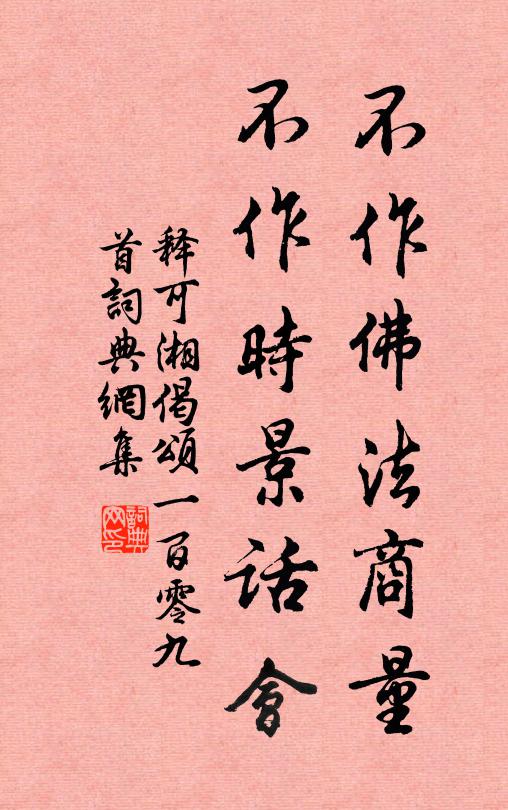 不作佛法商量
不作時景話會
释可湘偈頌一百零九
首詞典網集
詞典
网印